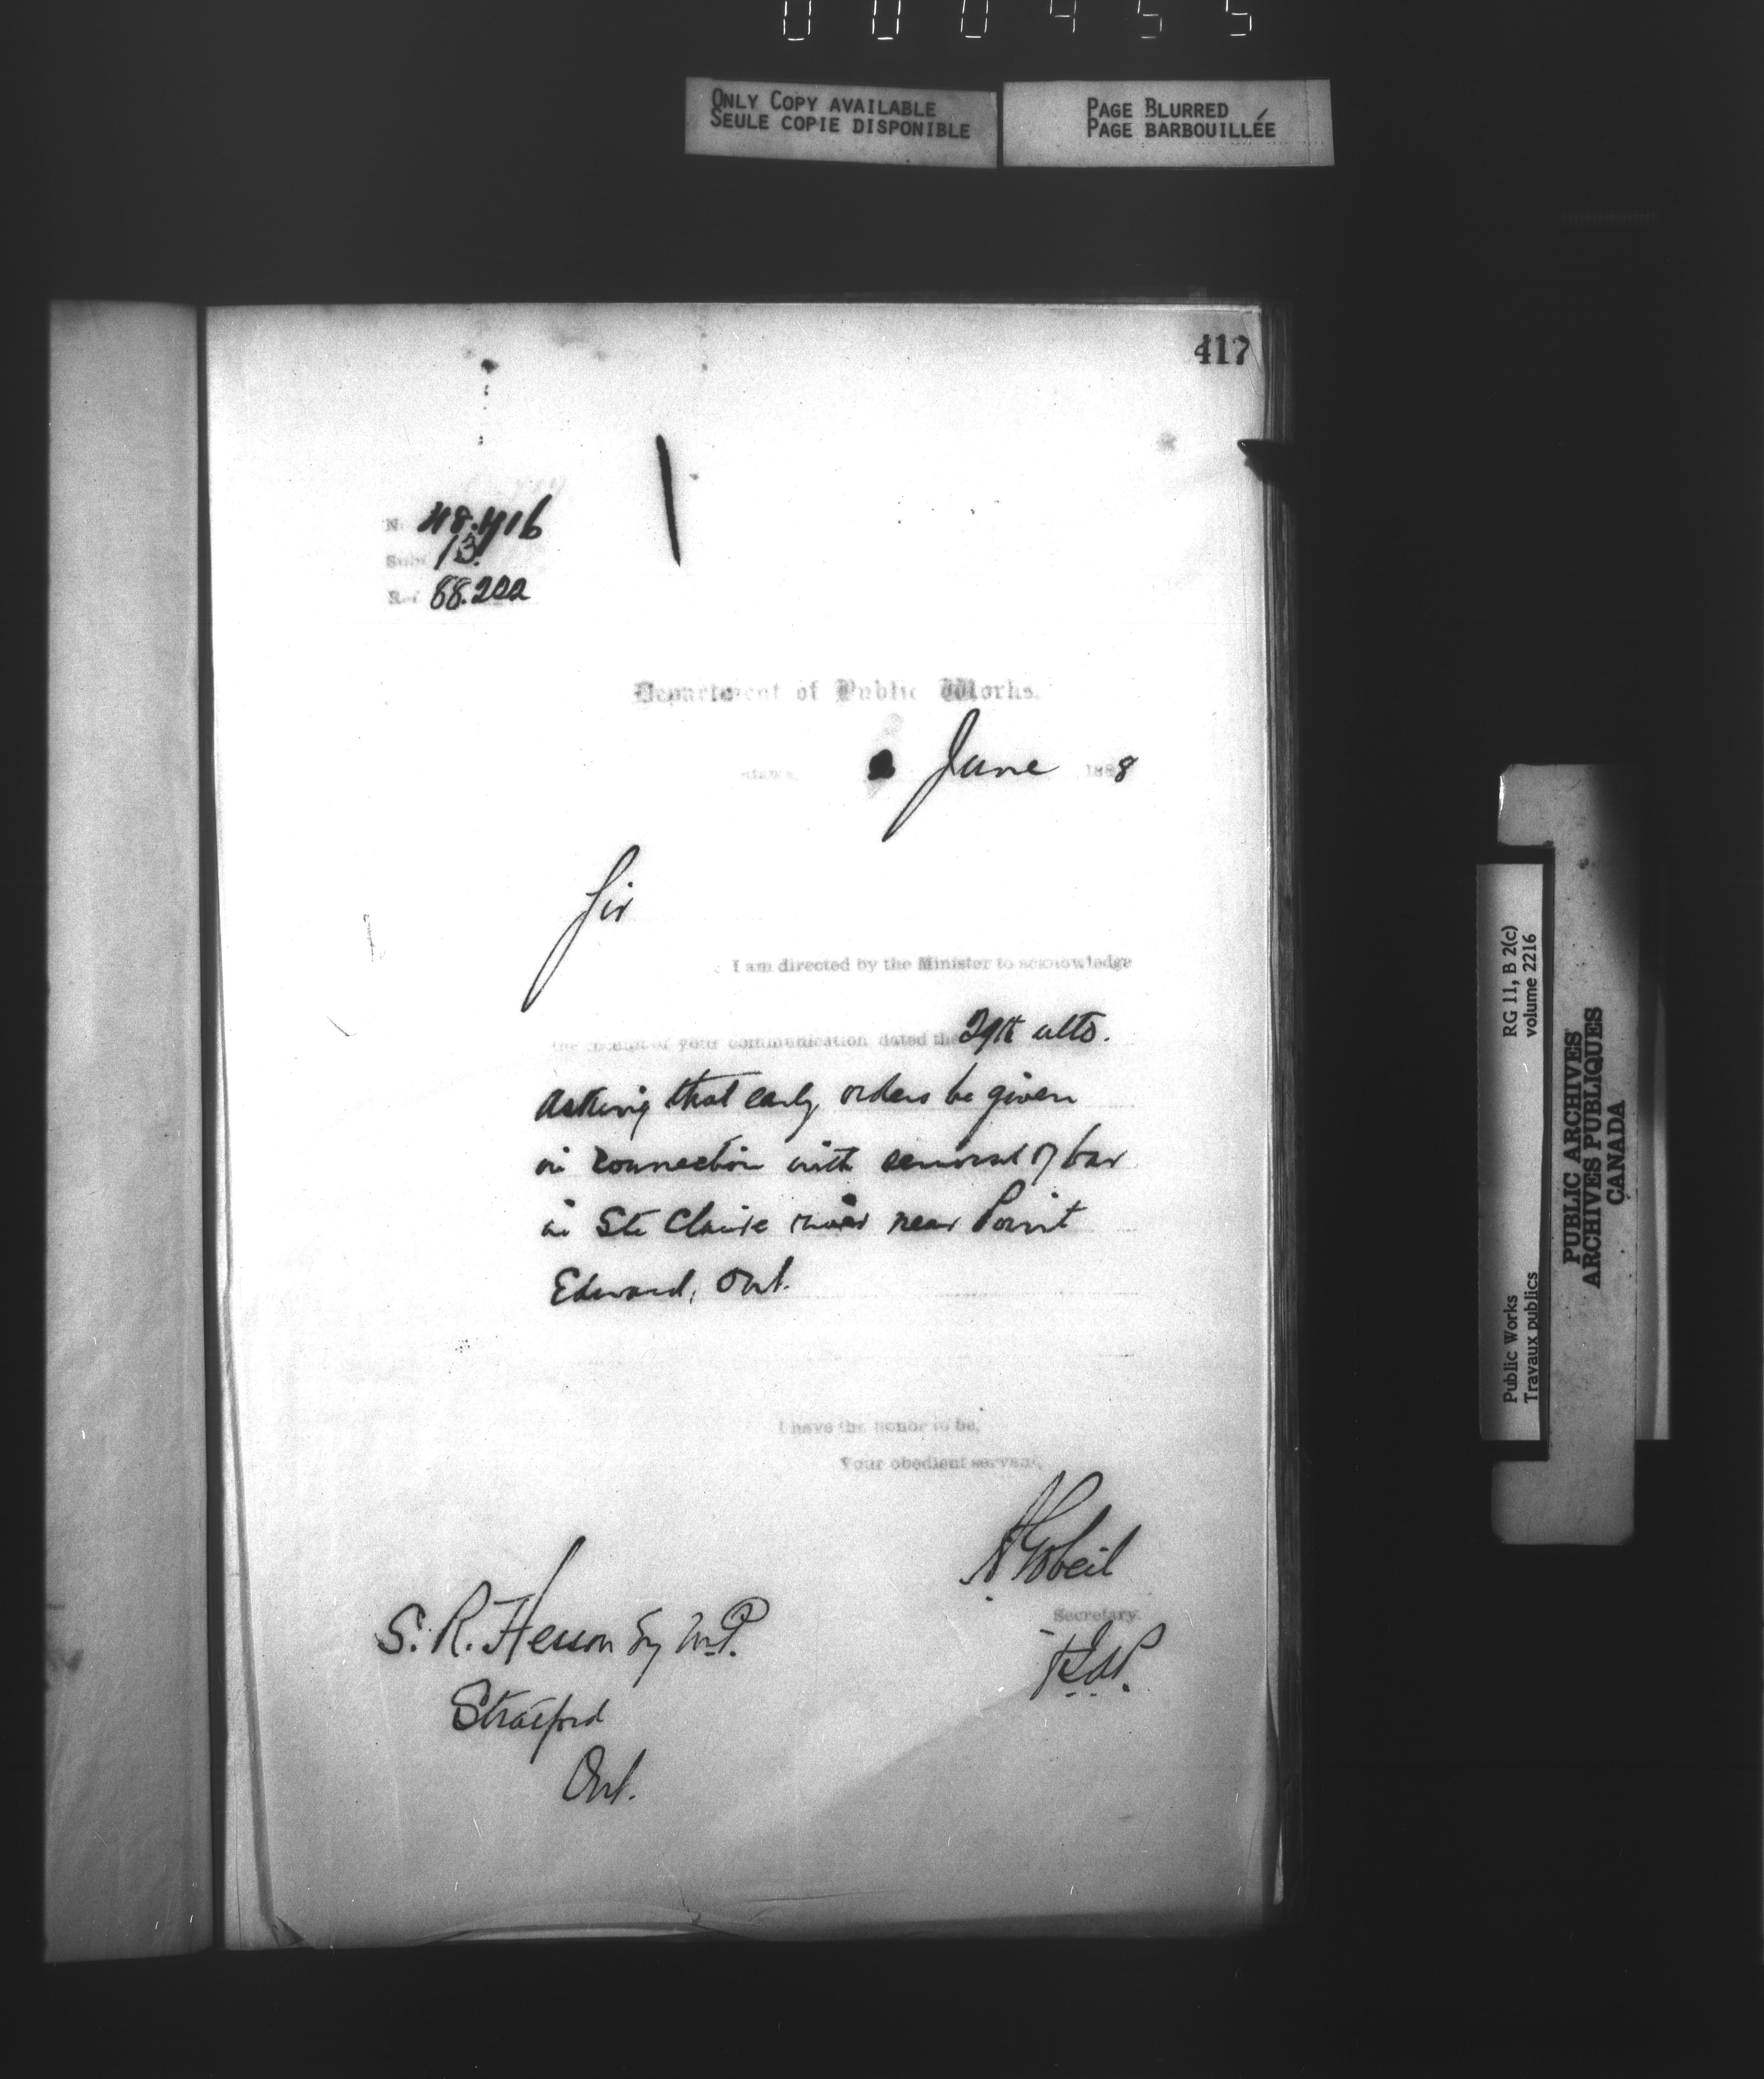 000455
ONLY COPY AVAILABLE
SEULE COPIE DISPONIBLE
PAGE BLURRED
PAGE BARBOUILLÉE
417
No
Subj. 13.
Ref. 88.222
Department of Public Works.
Ottawa, June 1888
Sir
I am directed by the Minister to acknowledge
the receipt of your communication dated the 29th ulto.
asking that early orders be given
in connection with removal of bar
in Ste Claire river near Point
Edward, Ont.
I have the honor to be,
Your obedient servant,
A Gobeil
Secretary.
S. R. Hesson Esq M.P.
Stratford
Ont.
RG 11, B 2(c)
volume 2216
Public Works
Travaux publics
PUBLIC ARCHIVES
ARCHIVES PUBLIQUES
CANADA